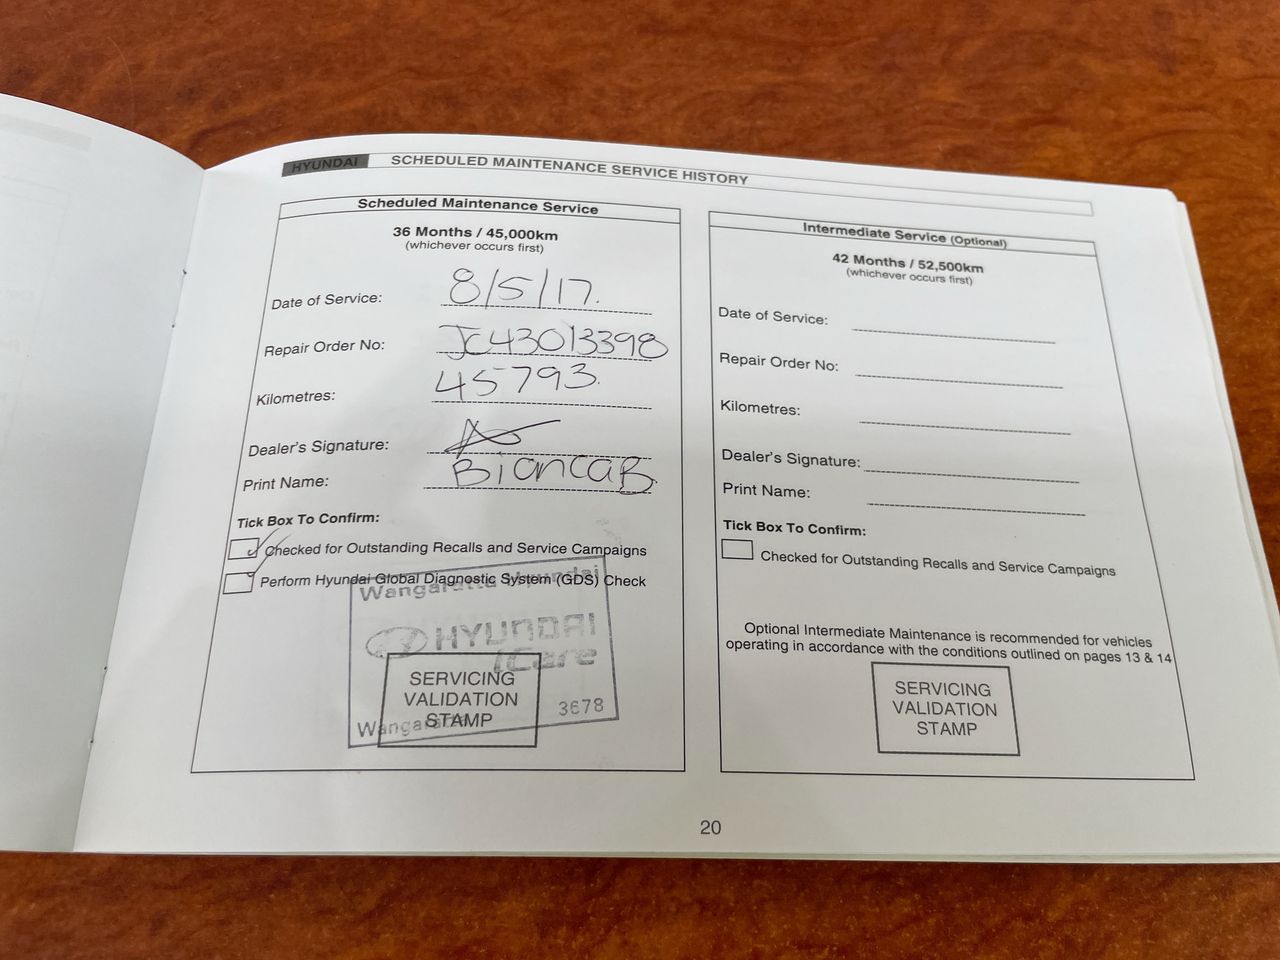 HYUNDAI SCHEDULED MAINTENANCE SERVICE HISTORY
Scheduled Maintenance Service
36 Months / 45,000km
(whichever occurs first)
Date of Service: 8/5/17.
Repair Order No: JC43013398
Kilometres: 45793.
Dealer's Signature:
Print Name: Bianca B
Tick Box To Confirm:
Checked for Outstanding Recalls and Service Campaigns
Perform Hyundai Global Diagnostic System (GDS) Check
Wangaratta Hyundai
HYUNDAI
iCare
SERVICING
VALIDATION
STAMP
Wangaratta 3678
Intermediate Service (Optional)
42 Months / 52,500km
(whichever occurs first)
Date of Service:
Repair Order No:
Kilometres:
Dealer's Signature:
Print Name:
Tick Box To Confirm:
Checked for Outstanding Recalls and Service Campaigns
Optional Intermediate Maintenance is recommended for vehicles
operating in accordance with the conditions outlined on pages 13 & 14
SERVICING
VALIDATION
STAMP
20